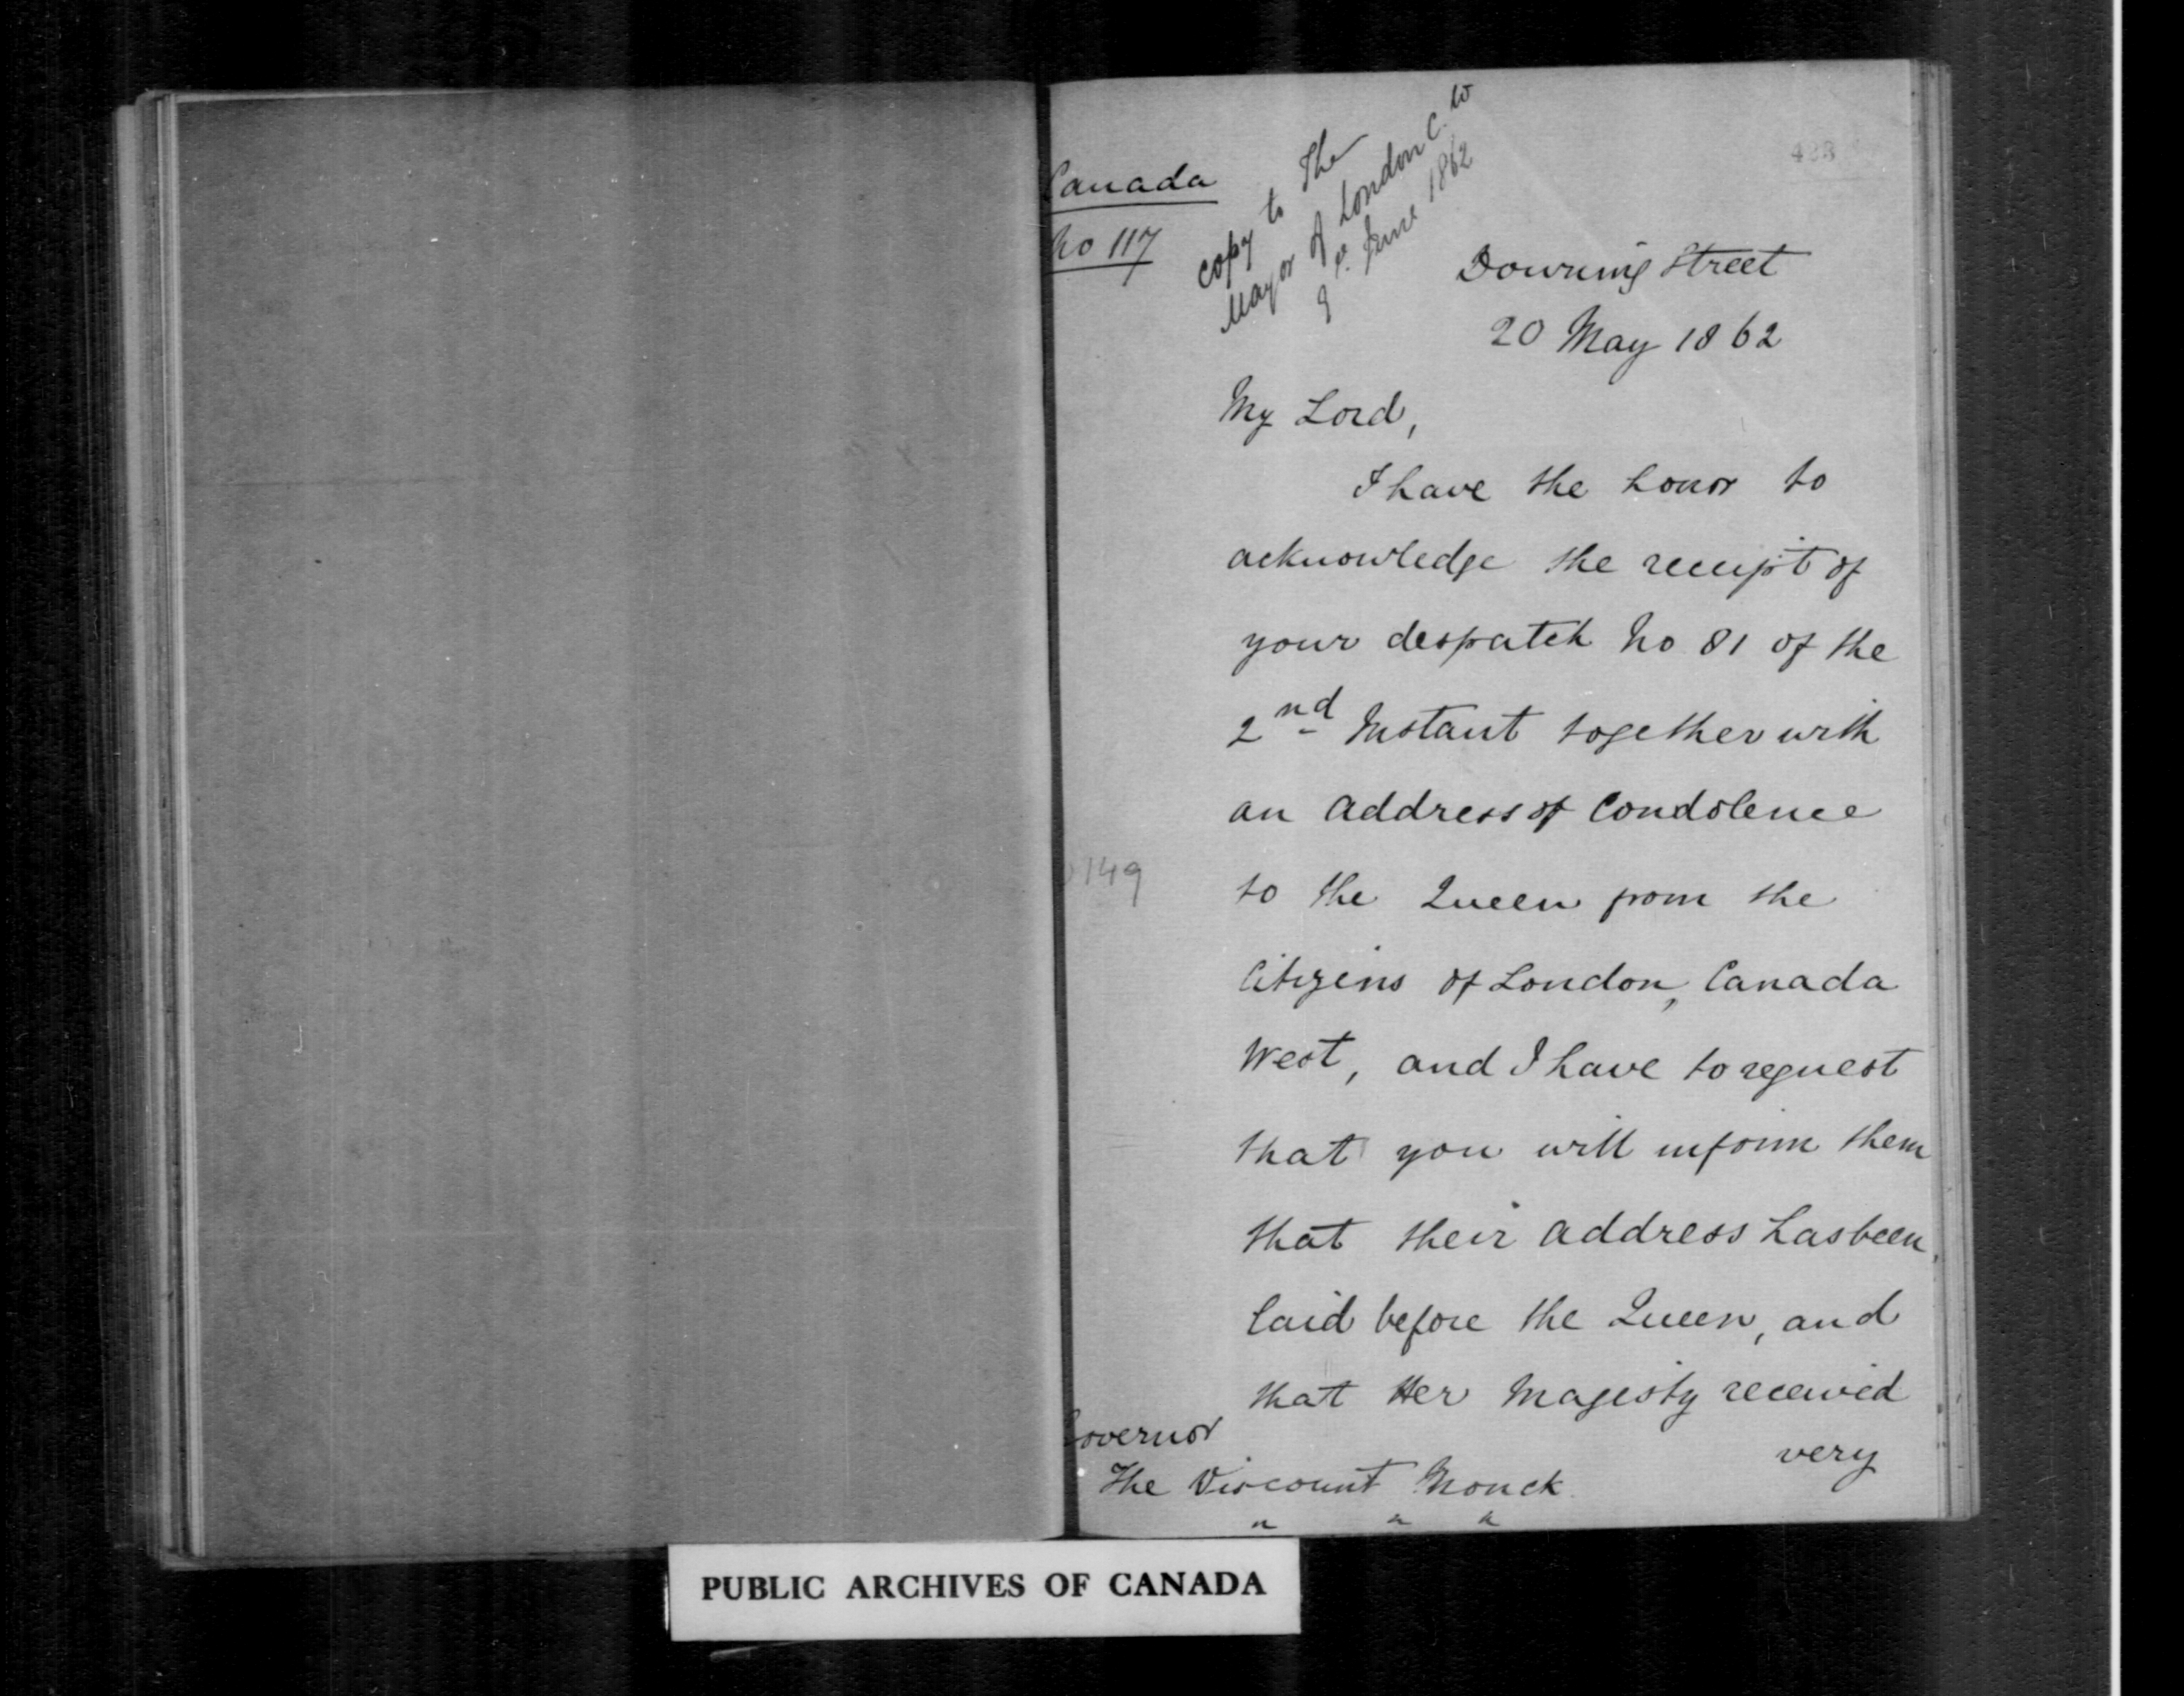 Canada
No 117
copy to The
Mayor of London C. W
9 June 1862
Downing Street
20 May 1862
My Lord,
I have the honor to
acknowledge the receipt of
your despatch No 81 of the
2nd Instant together with
an Address of Condolence
to the Queen from the
149
Citizens of London, Canada
West, and I have to request
that you will inform them
that their Address has been
laid before the Queen, and
that Her Majesty received
very
Governor
The Viscount Monck
" " "
PUBLIC ARCHIVES OF CANADA